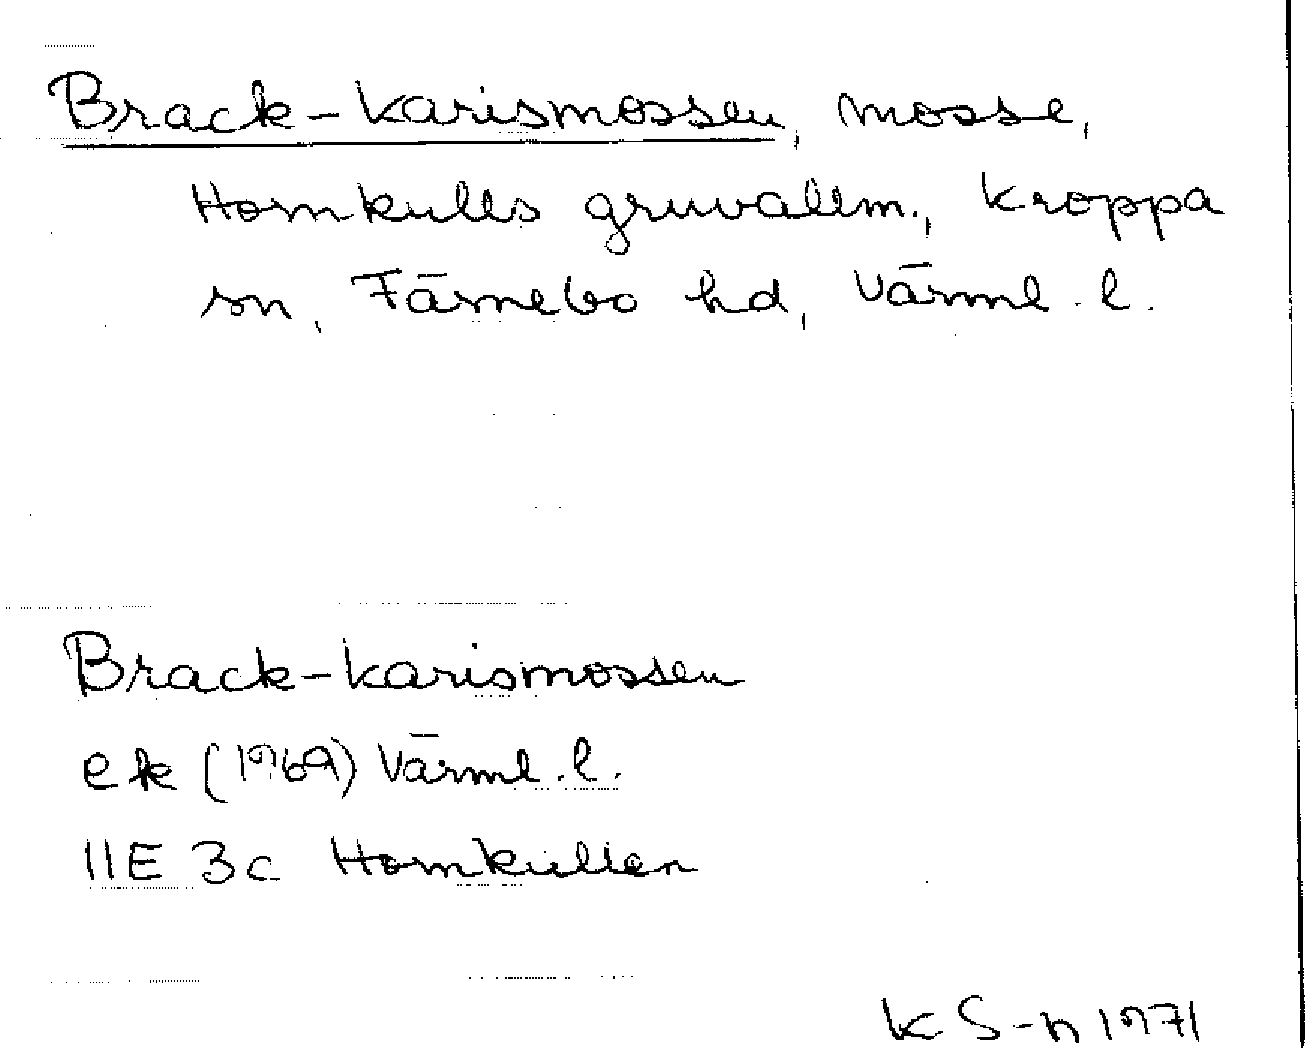 Brack-Karismossen, mosse,
Hornkulls gruvallm., Kroppa
sn, Färnebo hd, Värml. l.
Brack-Karismossen
ek (1969) Värml. l.
11E 3c Hornkullen
K S-n 1971